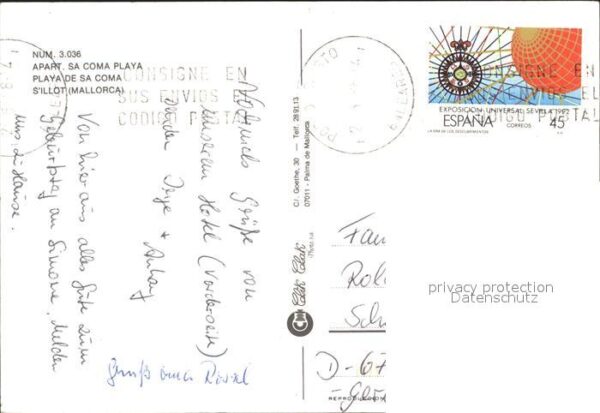 NÚM. 3.036
APART. SA COMA PLAYA
PLAYA DE SA COMA
S'ILLOT (MALLORCA)
CONSIGNE EN
SUS ENVIOS EL
CODIGO POSTAL
Grüße von
unserem Hotel (Vorderseite)
Anhang
Von hier aus alles Gute zum
Geburtstag an Simone, melden
uns zu Hause.
Gruß
C/. Goethe, 30 — Telf. 28 91 13
07011 - Palma de Mallorca
EXPOSICION UNIVERSAL SEVILLA 1992
ESPAÑA
CORREOS
45
LA ERA DE LOS DESCUBRIMIENTOS
CONSIGNE EN
SUS ENVIOS EL
CODIGO POSTAL
Fam
Rol
Sch
D-67
privacy protection
Datenschutz